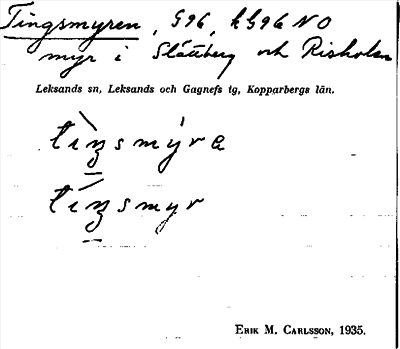 Tingsmyren, G96, kG96 NO
myr i Slättberg och Risholn
Leksands sn, Leksands och Gagnefs tg, Kopparbergs län.
tìŋsmýra
tíŋsmyr
ERIK M. CARLSSON, 1935.